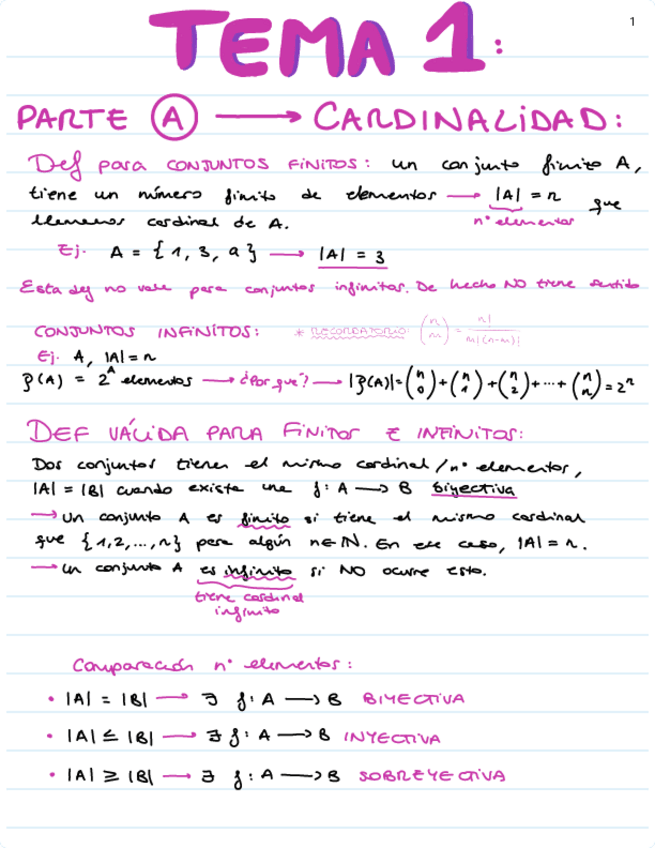 1
TEMA 1:
PARTE A → CARDINALIDAD:
Def para CONJUNTOS FINITOS: un conjunto finito A,
tiene un número finito de elementos → |A| = n que
llamamos cardinal de A. nº elementos
Ej. A = {1, 3, a} → |A| = 3
Esta def no vale para conjuntos infinitos. De hecho NO tiene sentido
CONJUNTOS INFINITOS: * RECORDATORIO: (n m) = n! / m!(n-m)!
Ej. A, |A| = n
P(A) = 2^A elementos → ¿Por qué? → |P(A)| = (n 0) + (n 1) + (n 2) + ... + (n n) = 2^n
DEF VÁLIDA PARA FINITOS E INFINITOS:
Dos conjuntos tienen el mismo cardinal / nº elementos,
|A| = |B| cuando existe una f: A → B biyectiva
→ Un conjunto A es finito si tiene el mismo cardinal
que {1,2,...,n} para algún n∈ℕ. En ese caso, |A| = n.
→ Un conjunto A es infinito si NO ocurre esto.
tiene cardinal
infinito
Comparación nº elementos:
• |A| = |B| → ∃ f: A → B BIYECTIVA
• |A| ≤ |B| → ∃ f: A → B INYECTIVA
• |A| ≥ |B| → ∃ f: A → B SOBREYECTIVA